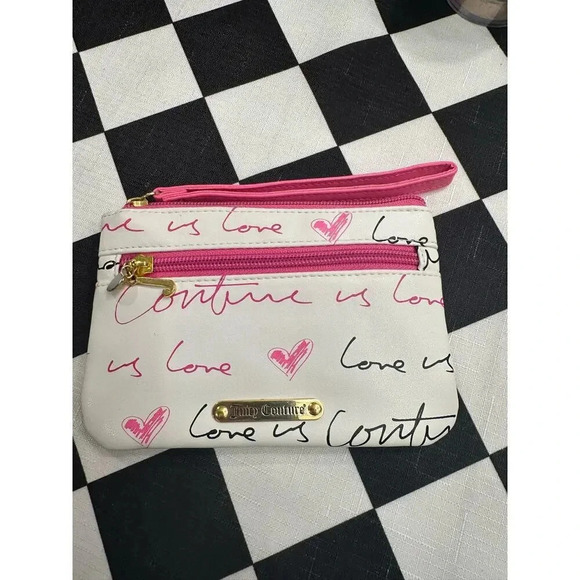 us love love
Couture us love
us love love us
Juicy Couture
love us Couture